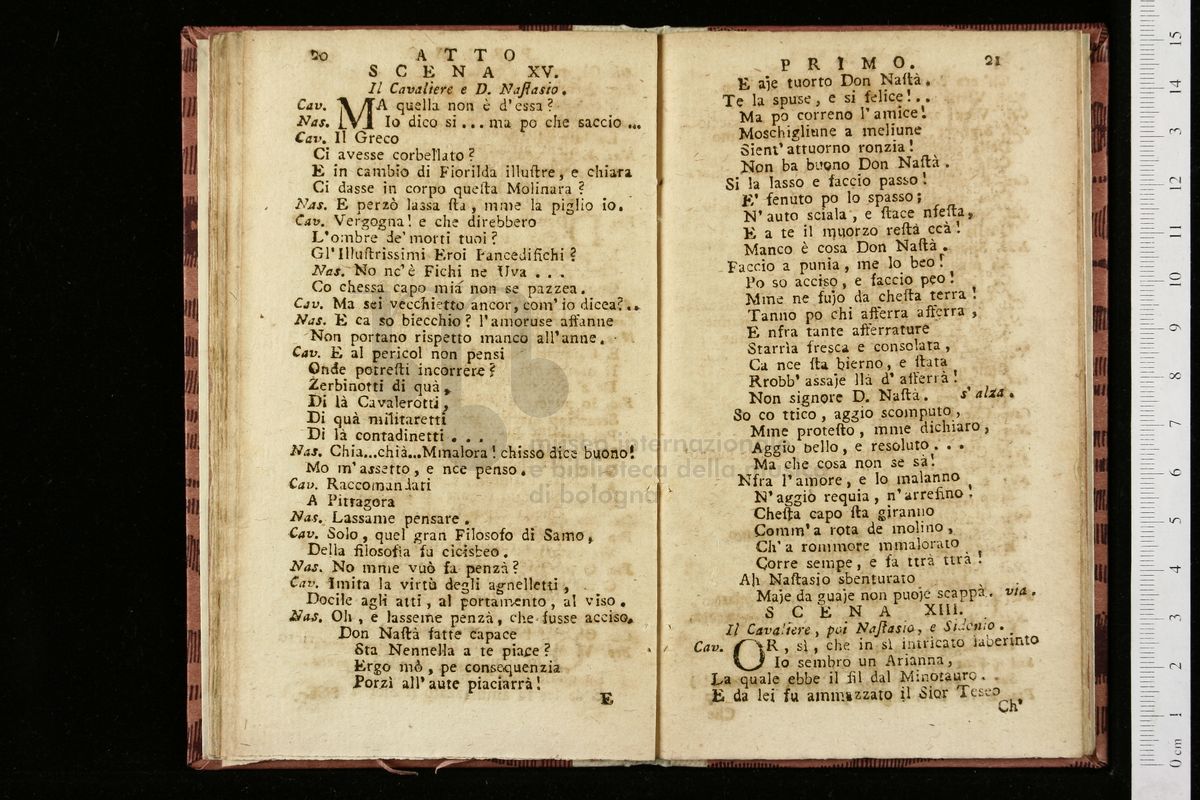 20 ATTO
SCENA XV.
Il Cavaliere e D. Naſtasio.
Cav. MA quella non è d'essa?
Nas. Io dico si ... ma po che saccio ...
Cav. Il Greco
Ci avesse corbellato?
E in cambio di Fiorilda illuſtre, e chiara
Ci dasse in corpo queſta Molinara?
Nas. E perzò lassa ſta, mme la piglio io.
Cav. Vergogna! e che direbbero
L'ombre de' morti tuoi?
Gl'Illuſtrissimi Eroi Pancedifichi?
Nas. No nc'è Fichi ne Uva . . .
Co chessa capo mia non se pazzea.
Cav. Ma sei vecchietto ancor, com' io dicea? ..
Nas. E ca so biecchio? l'amoruse affanne
Non portano rispetto manco all'anne.
Cav. E al pericol non pensi
Onde potreſti incorrere?
Zerbinotti di quà,
Di là Cavalerotti,
Di quà militaretti
Di là contadinetti . . .
Nas. Chia...chià...Mmalora! chisso dice buono!
Mo m'assetto, e nce penso.
Cav. Raccomandati
A Pittagora
Nas. Lassame pensare.
Cav. Solo, quel gran Filosofo di Samo,
Della filosofia fu cicisbeo.
Nas. No mme vuò fa penzà?
Cav. Imita la virtù degli agnelletti,
Docile agli atti, al portamento, al viso.
Nas. Oh, e lasseme penzà, che fusse acciso.
Don Naſtà fatte capace
Sta Nennella a te piace?
Ergo mò, pe consequenzia
Porzì all'aute piaciarrà!
E
PRIMO. 21
E aje tuorto Don Naſtà.
Te la spuse, e si felice!..
Ma po correno l'amice!
Moschigliune a meliune
Sient' attuorno ronzia!
Non ba buono Don Naſtà.
Si la lasso e faccio passo!
E' fenuto po lo spasso;
N'auto sciala, e ſtace nfeſta,
E a te il muorzo reſtà ccà!
Manco è cosa Don Naſtà.
Faccio a punia, me lo beo!
Po so acciso, e faccio peo!
Mme ne fujo da cheſta terra!
Tanno po chi afferra afferra,
E nfra tante afferrature
Starria fresca e consolata,
Ca nce ſta bierno, e ſtata
Rrobb' assaje llà d'afferrà!
Non signore D. Naſtà. s'alza.
So co ttico, aggio scomputo,
Mme proteſto, mme dichiaro,
Aggio bello, e resoluto . . .
Ma che cosa non se sà!
Nfra l'amore, e lo malanno
N'aggio requia, n'arrefino!
Cheſta capo ſta giranno
Comm'a rota de molino,
Ch'a rommore mmalorato
Corre sempe, e fa ttrà ttrà!
Ah Naſtasio sbenturato
Maje da guaje non puoje scappà. via.
SCENA XIII.
Il Cavaliere, poi Naſtasio, e Sidonio.
Cav. OR, sì, che in sì intricato laberinto
Io sembro un Arianna,
La quale ebbe il fil dal Minotauro.
E da lei fu ammazzato il Sior Teseo
Ch'
museo internazionale
e biblioteca della musica
di bologna
0 cm 1 2 3 4 5 6 7 8 9 10 11 12 13 14 15